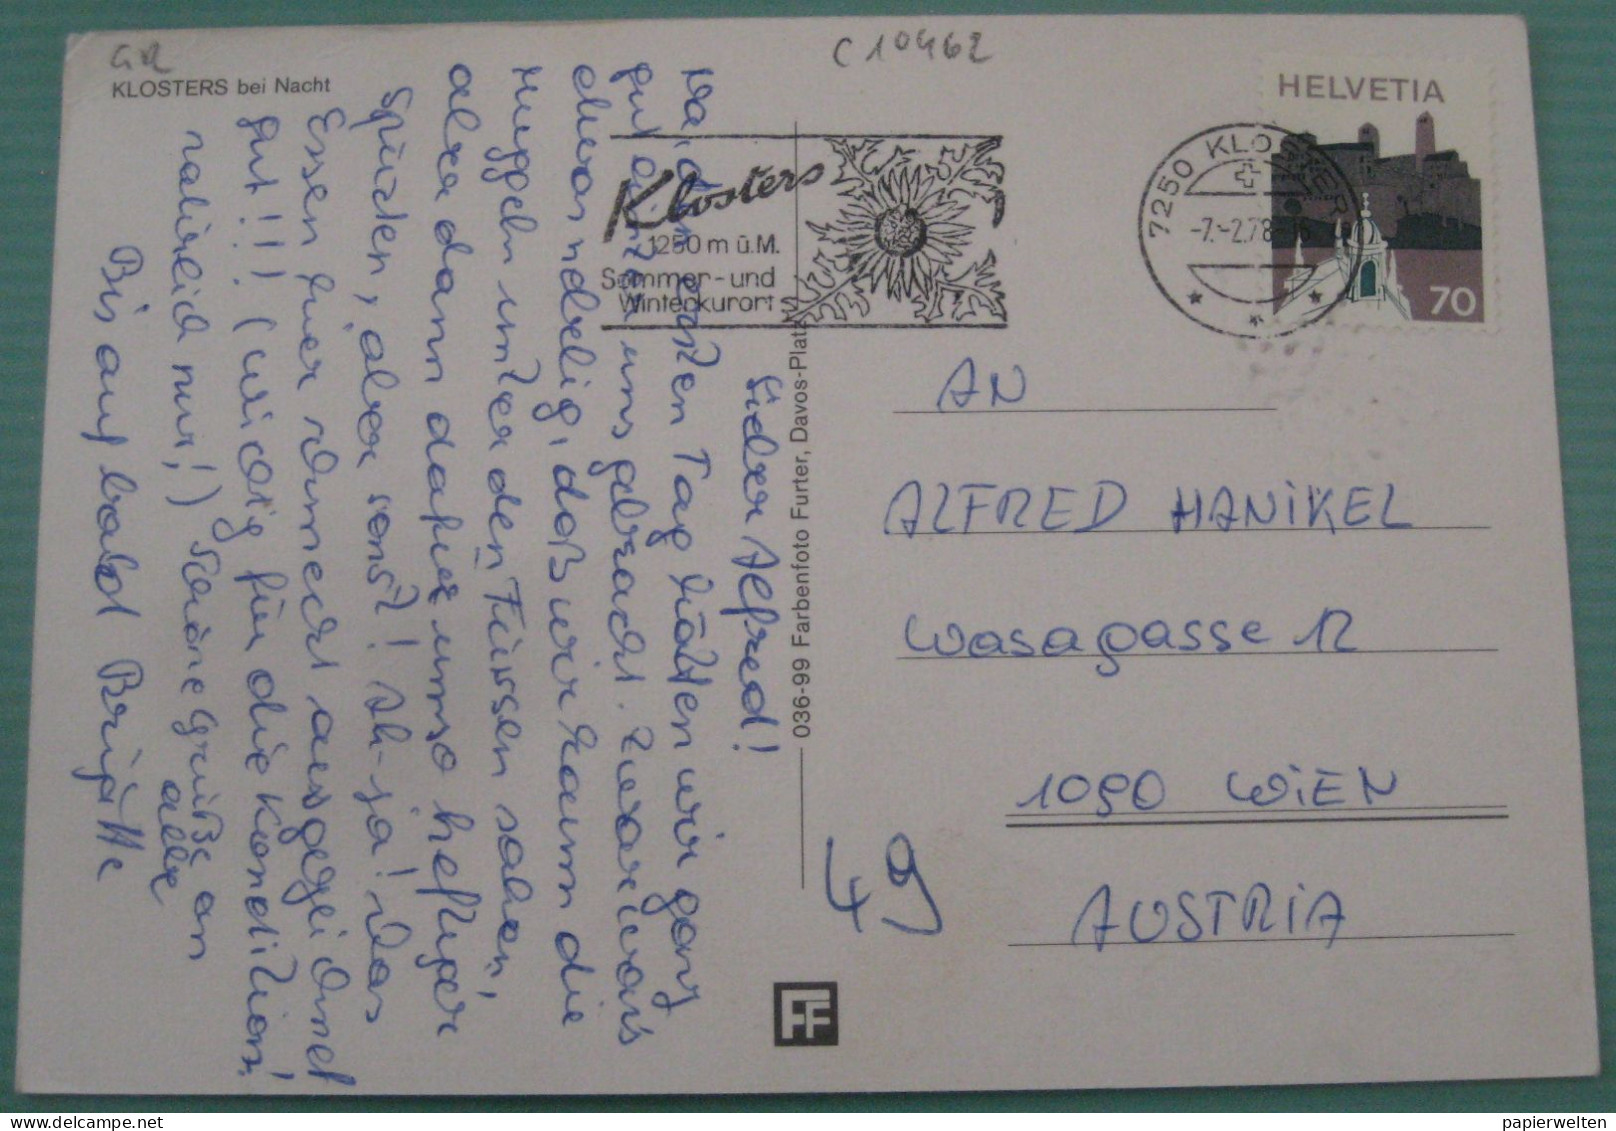 GR
C 10462
KLOSTERS bei Nacht
HELVETIA
70
7250 KLOSTERS
-7.-2.78-16
Klosters
1250 m ü.M.
Sommer- und
Winterkurort
Lieber Alfred!
Nach dem ersten Tag hätten wir ganz
gut hinter uns gebracht. Zwar war's
etwas nebelig, daß wir kaum die
Huggeln unter den Füssen sahen,
aber dann dafür umso heftiger
spürten, aber sonst! Ah-ja! Das
Essen hier schmeckt ausgezeichnet
gut!!! (wichtig für die Kondition!
natürlich nur!) Schöne Grüße an
alle
Bis auf bald Brigitte
036-99 Farbenfoto Furter, Davos-Platz
FF
AN
ALFRED HANIKEL
Wasagasse 12
1090 WIEN
AUSTRIA